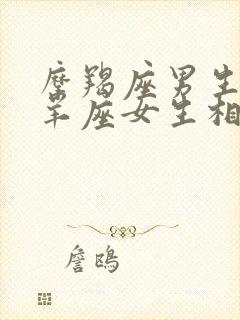 摩羯座男生
羊座女生相
詹鴎